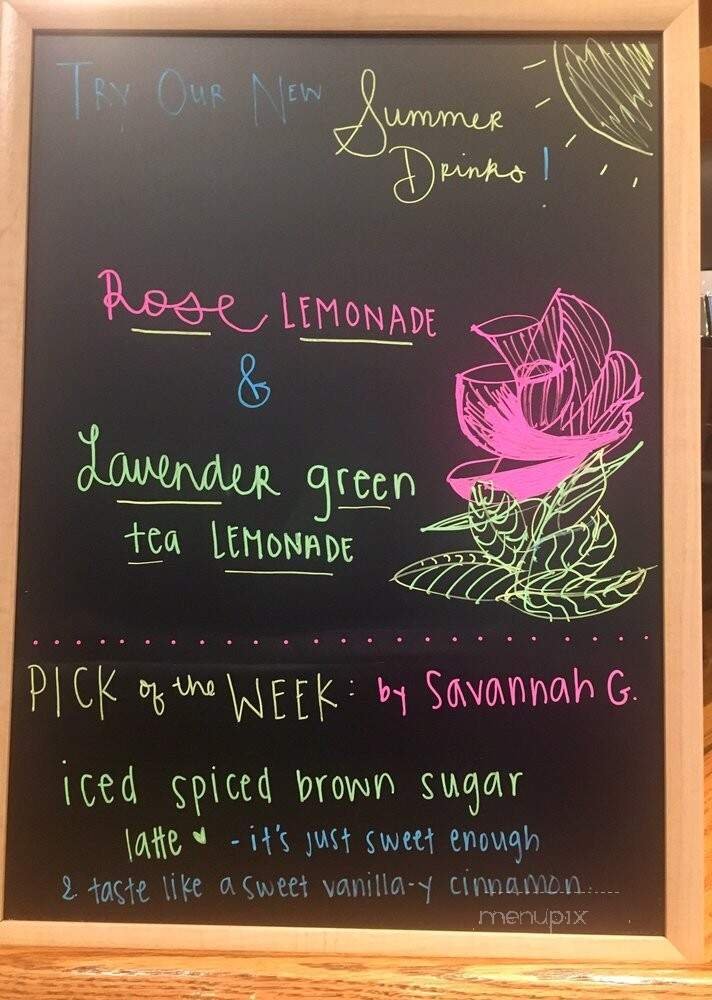 TRY OUR NEW Summer
Drinks!
Rose LEMONADE
&
Lavender green
tea LEMONADE
PICK of the WEEK: by Savannah G.
iced spiced brown sugar
latte ♥ - it's just sweet enough
& taste like a sweet vanilla-y cinnamon......
menupix